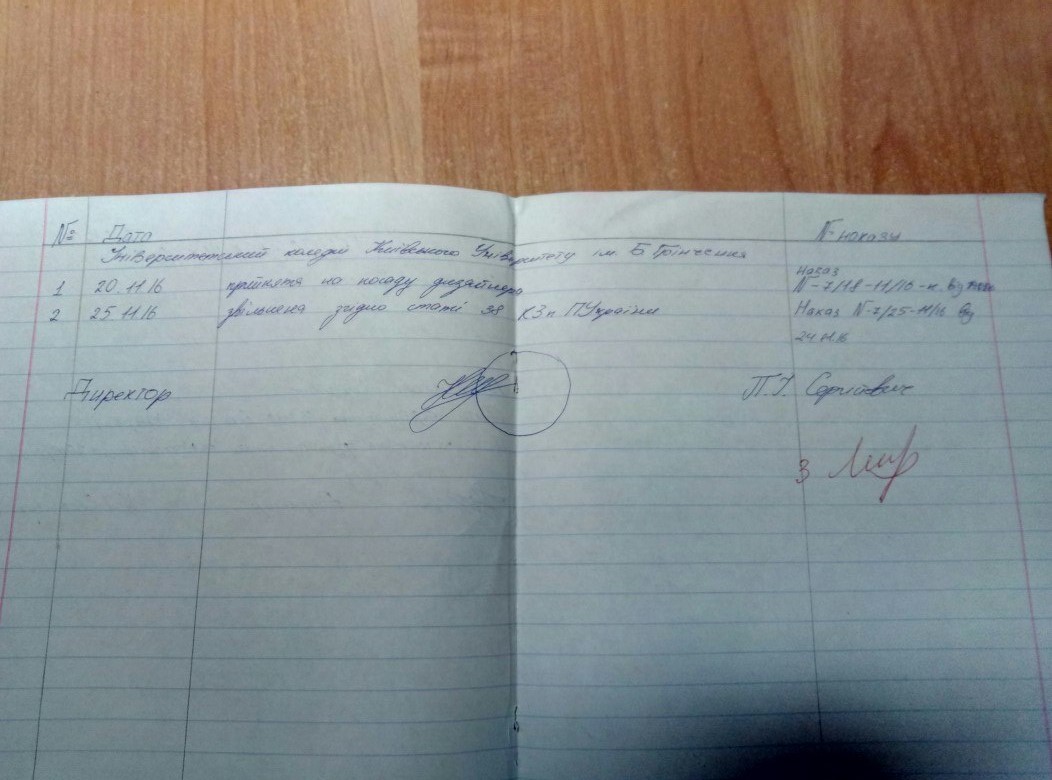 № Дата № наказу
Університетський коледж Київського Університету ім. Б Грінченка
Наказ
1 20.11.16 прийнята на посаду дизайнера N-7/18-11/16-к. від
2 25.11.16 звільнена згідно статі 38 КЗп ПУкраїни Наказ N-7/25-11/16 від
24.11.16
Директор П.І. Сергієвич
З